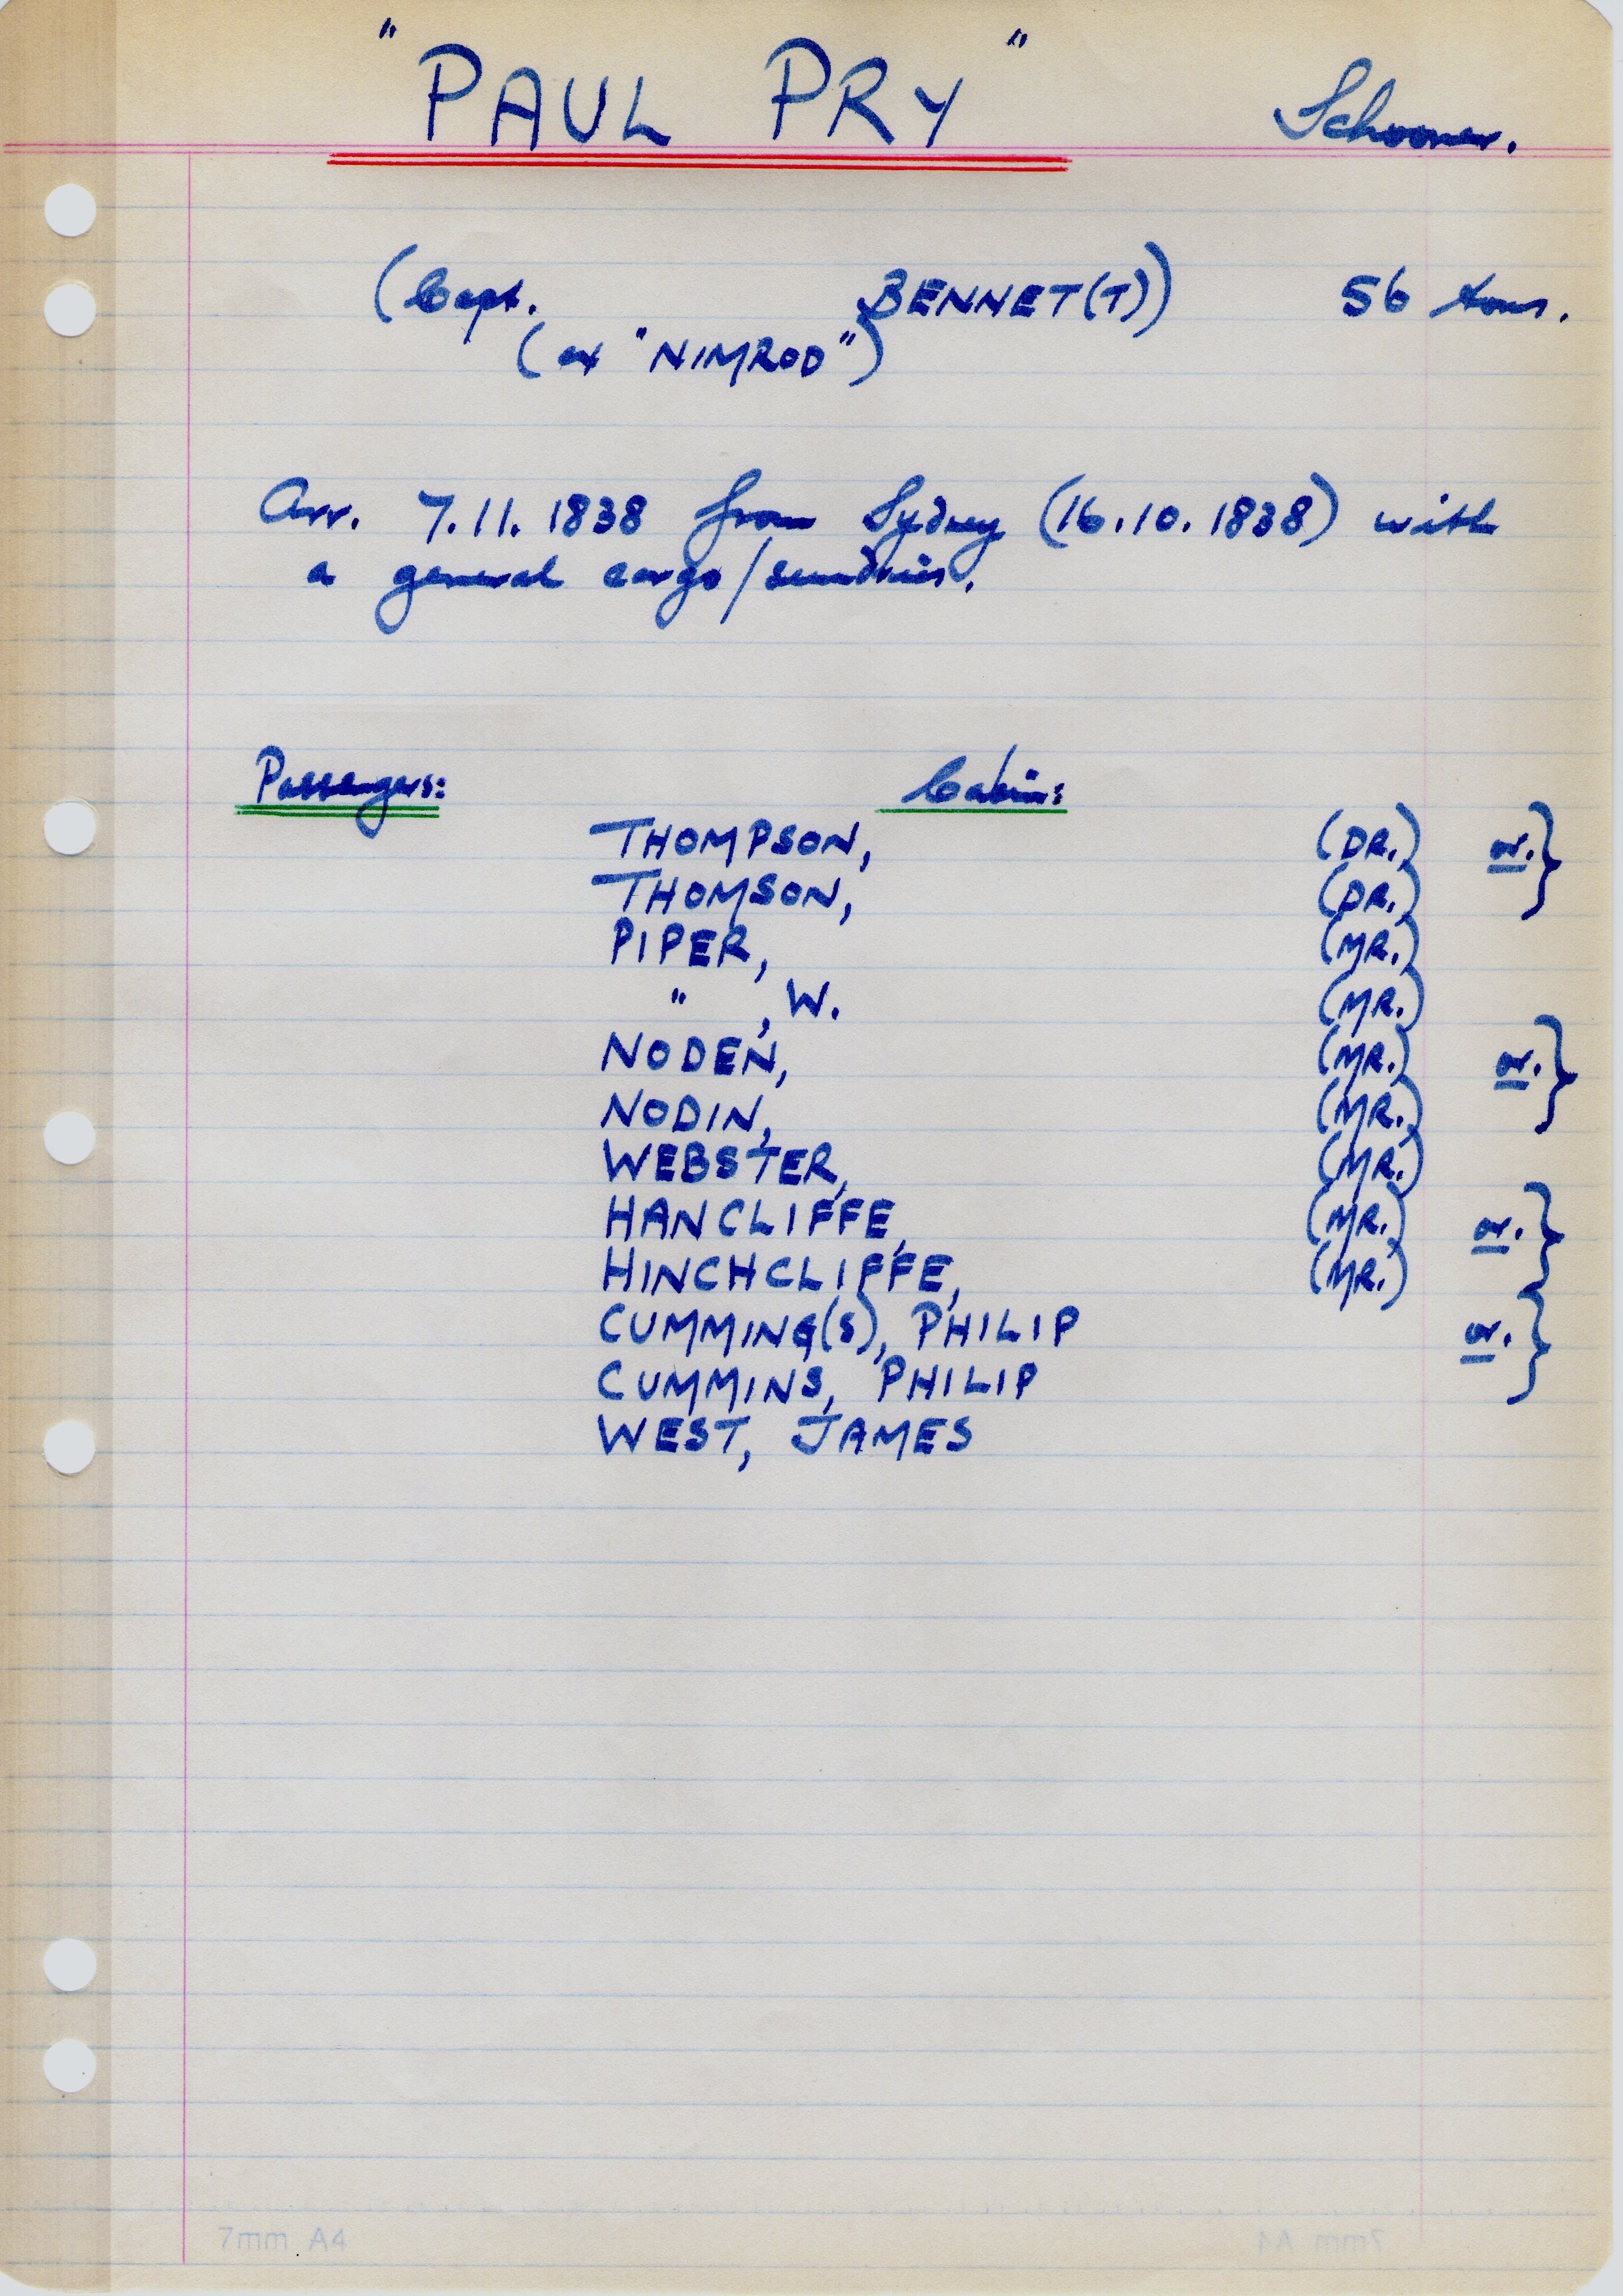 "PAUL PRY" Schooner.
(Capt. BENNET(T)) 56 tons.
(ex "NIMROD")
Arr. 7.11.1838 from Sydney (16.10.1838) with
a general cargo/sundries.
Passengers: Cabin:
THOMPSON, (DR.) or.}
THOMSON, (DR.)
PIPER, (MR.)
" , W. (MR.)
NODEN, (MR.) or.}
NODIN, (MR.)
WEBSTER, (MR.)
HANCLIFFE, (MR.) or.}
HINCHCLIFFE, (MR.)
CUMMING(S), PHILIP or.}
CUMMINS, PHILIP
WEST, JAMES
7mm A4 7mm A4